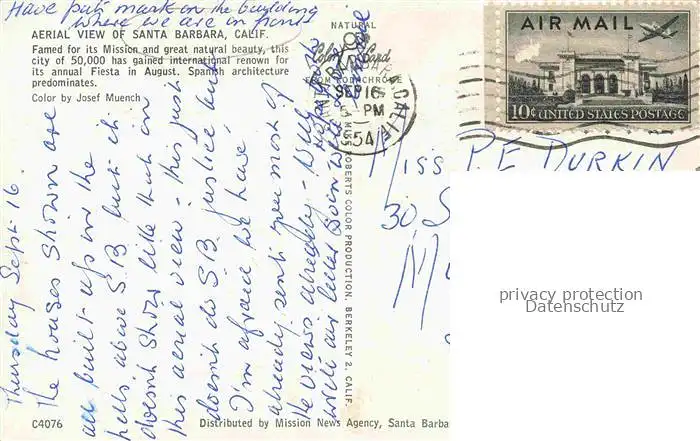 Have put mark on the building
where we are in front
AERIAL VIEW OF SANTA BARBARA, CALIF.
Famed for its Mission and great natural beauty, this
city of 50,000 has gained international renown for
its annual Fiesta in August. Spanish architecture
predominates.
Color by Josef Muench
NATURAL
Color Card
FROM KODACHROME
SEP 16
PM
54
CALIF
AIR MAIL
10¢ UNITED STATES POSTAGE
Miss P E DURKIN
30 S
M
privacy protection
Datenschutz
Thursday Sept 16.
The houses shown are
all built up in the
hills above S.B but it
doesnt show like that in
this aerial view - this just
doesnt do S.B. justice but
I'm afraid we have
already sent you most of
the views already - Will
write air letter soon
MIKE ROBERTS COLOR PRODUCTION, BERKELEY 2, CALIF.
C4076
Distributed by Mission News Agency, Santa Barba